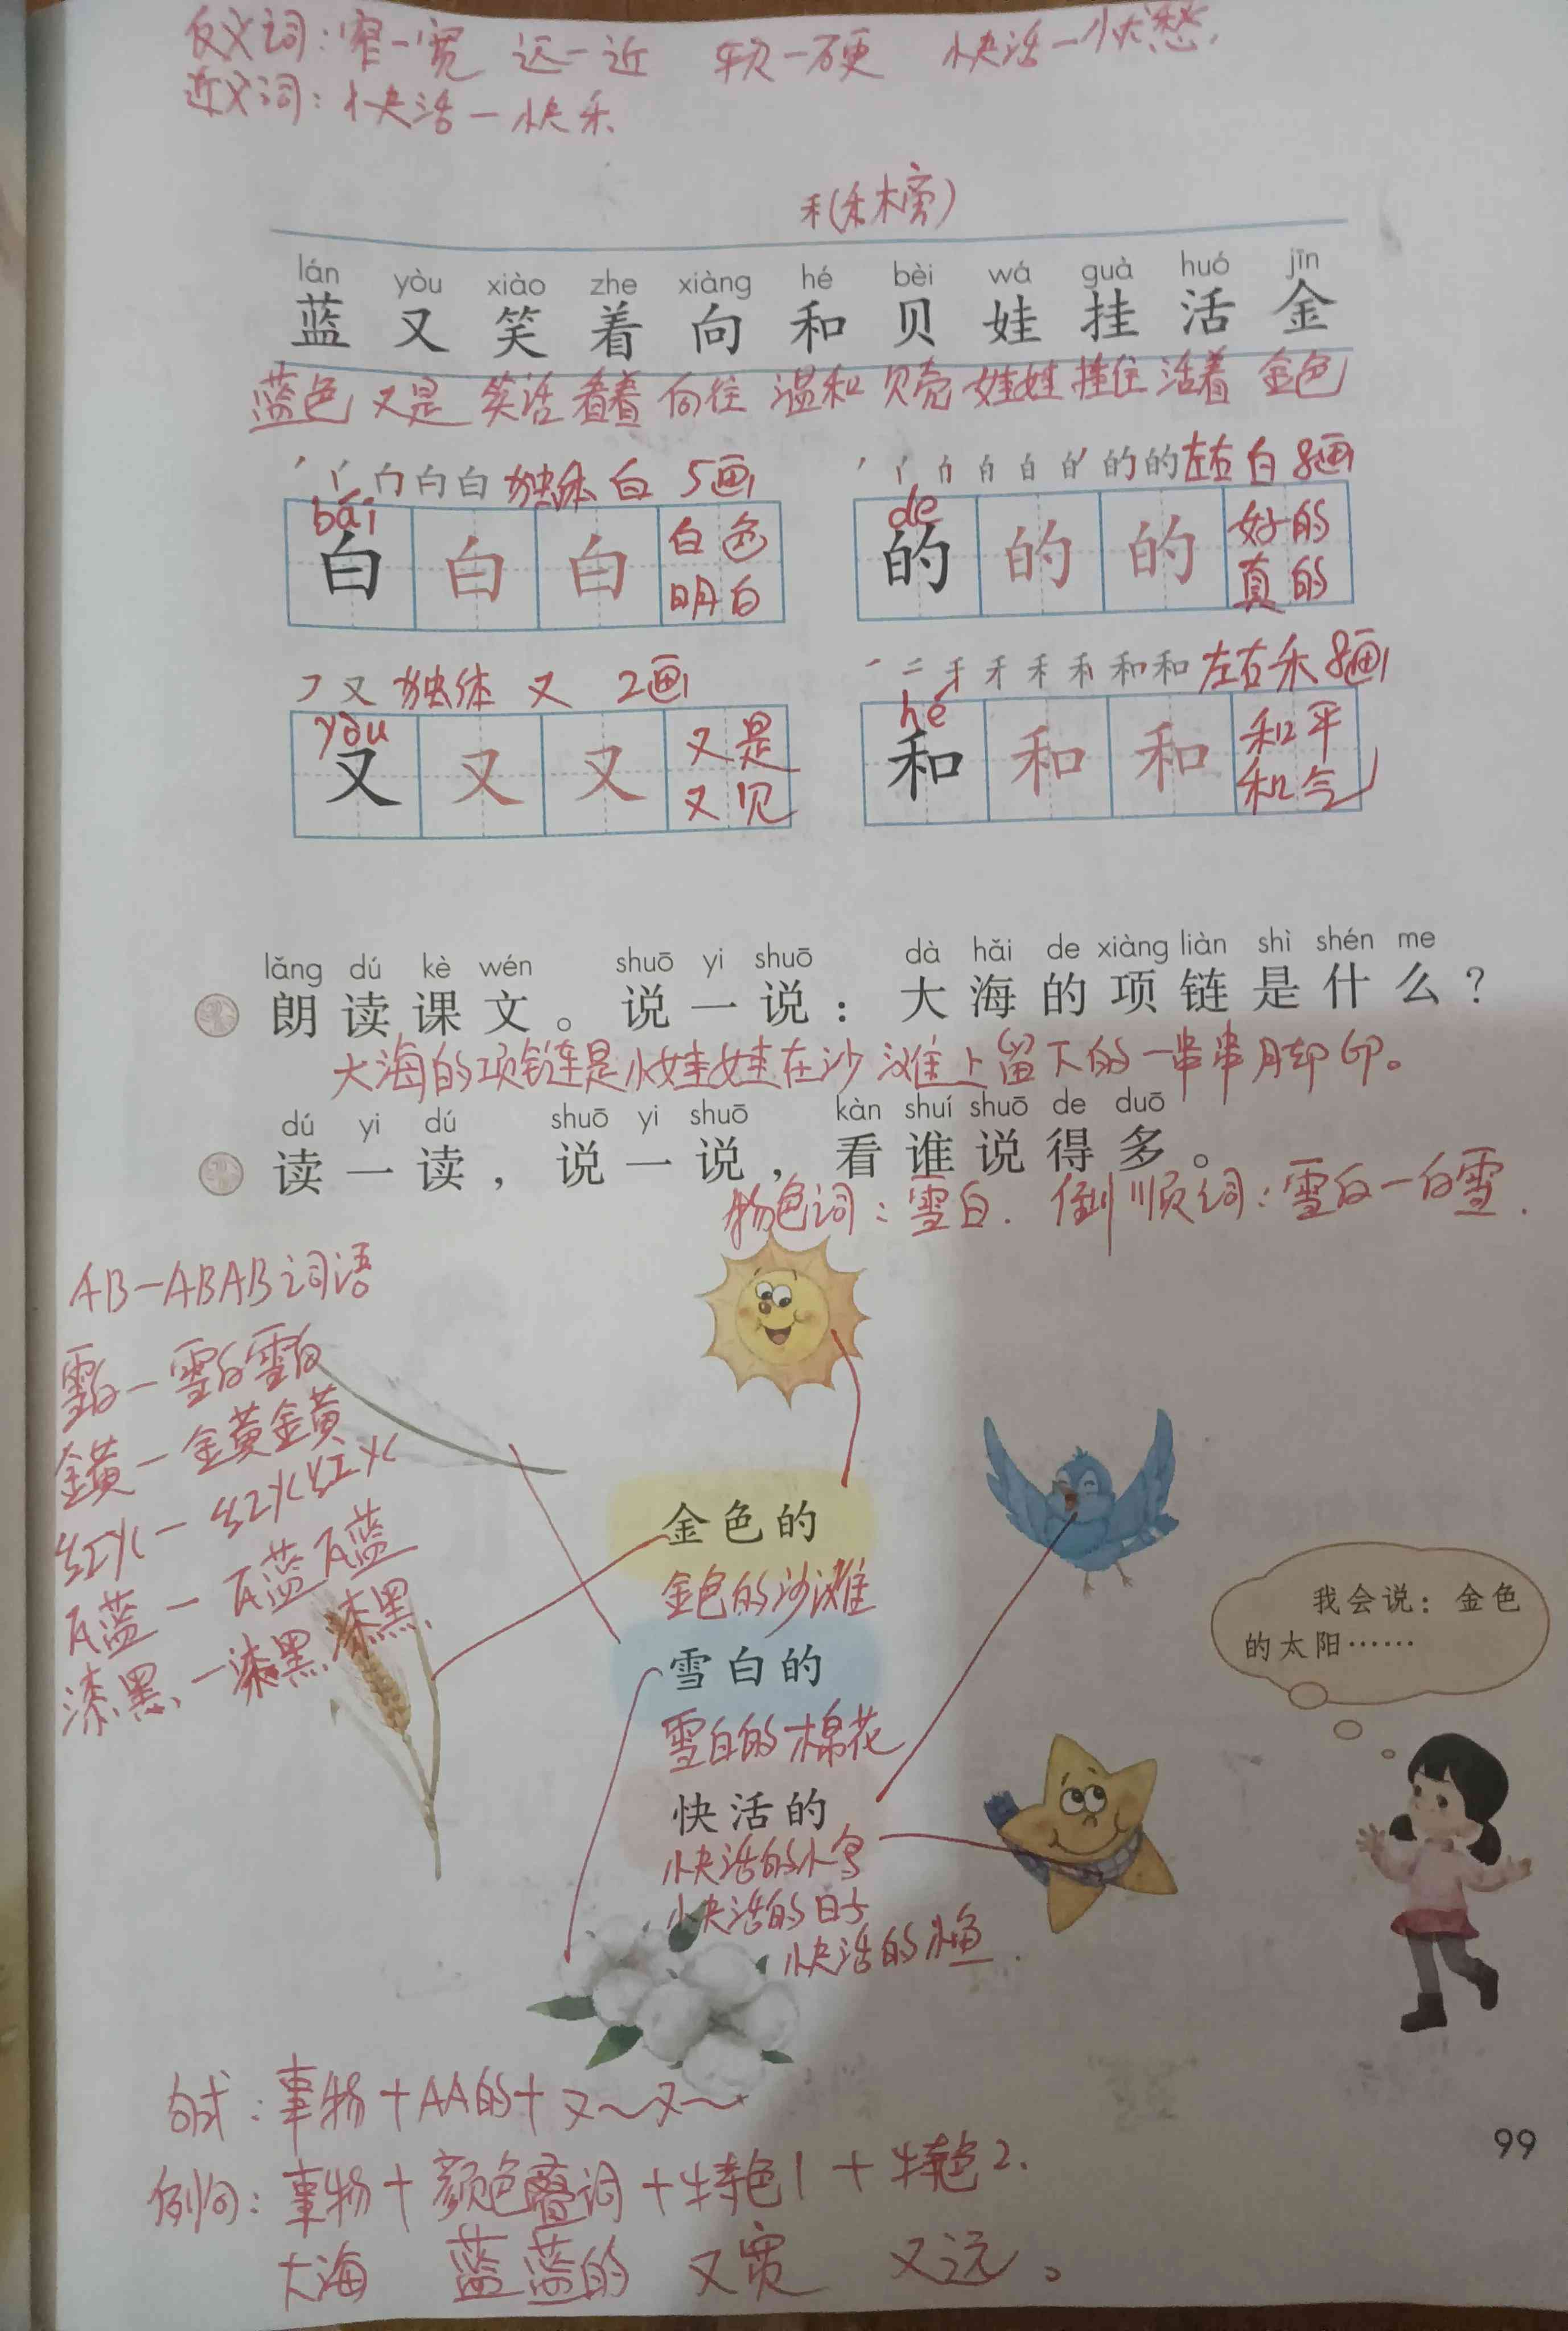 反义词：窄一宽 远一近 软一硬 快活一忧愁.
近义词：快活一快乐
禾(禾木旁)
lán yòu xiào zhe xiàng hé bèi wá guà huó jīn
蓝 又 笑 着 向 和 贝 娃 挂 活 金
蓝色 又是 笑话 看着 向往 温和 贝壳 娃娃 挂住 活着 金色
独体 白 5画
bái
白 白 白 白色
明白
左右 白 8画
de
的 的 的 好的
真的
㇇ 又 独体 又 2画
yòu
又 又 又 又是
又见
左右 禾 8画
hé
和 和 和 和平
和气
lǎng dú kè wén shuō yi shuō dà hǎi de xiàng liàn shì shén me
朗读课文。说一说：大海的项链是什么？
大海的项链是小娃娃在沙滩上留下的一串串脚印。
dú yi dú shuō yi shuō kàn shuí shuō de duō
读一读，说一说，看谁说得多。
物色词：雪白. 倒顺词：雪白一白雪.
AB一ABAB词语
雪白一雪白雪白
金黄一金黄金黄
红火一红火红火
瓦蓝一瓦蓝瓦蓝
漆黑一漆黑漆黑
金色的
金色的沙滩
雪白的
雪白的棉花
快活的
快活的小鸟
快活的日子
快活的小鱼.
我会说：金色
的太阳……
句式：事物+AA的+又~又~
例句：事物+颜色叠词+特色1+特色2.
大海 蓝蓝的 又宽 又远。
99